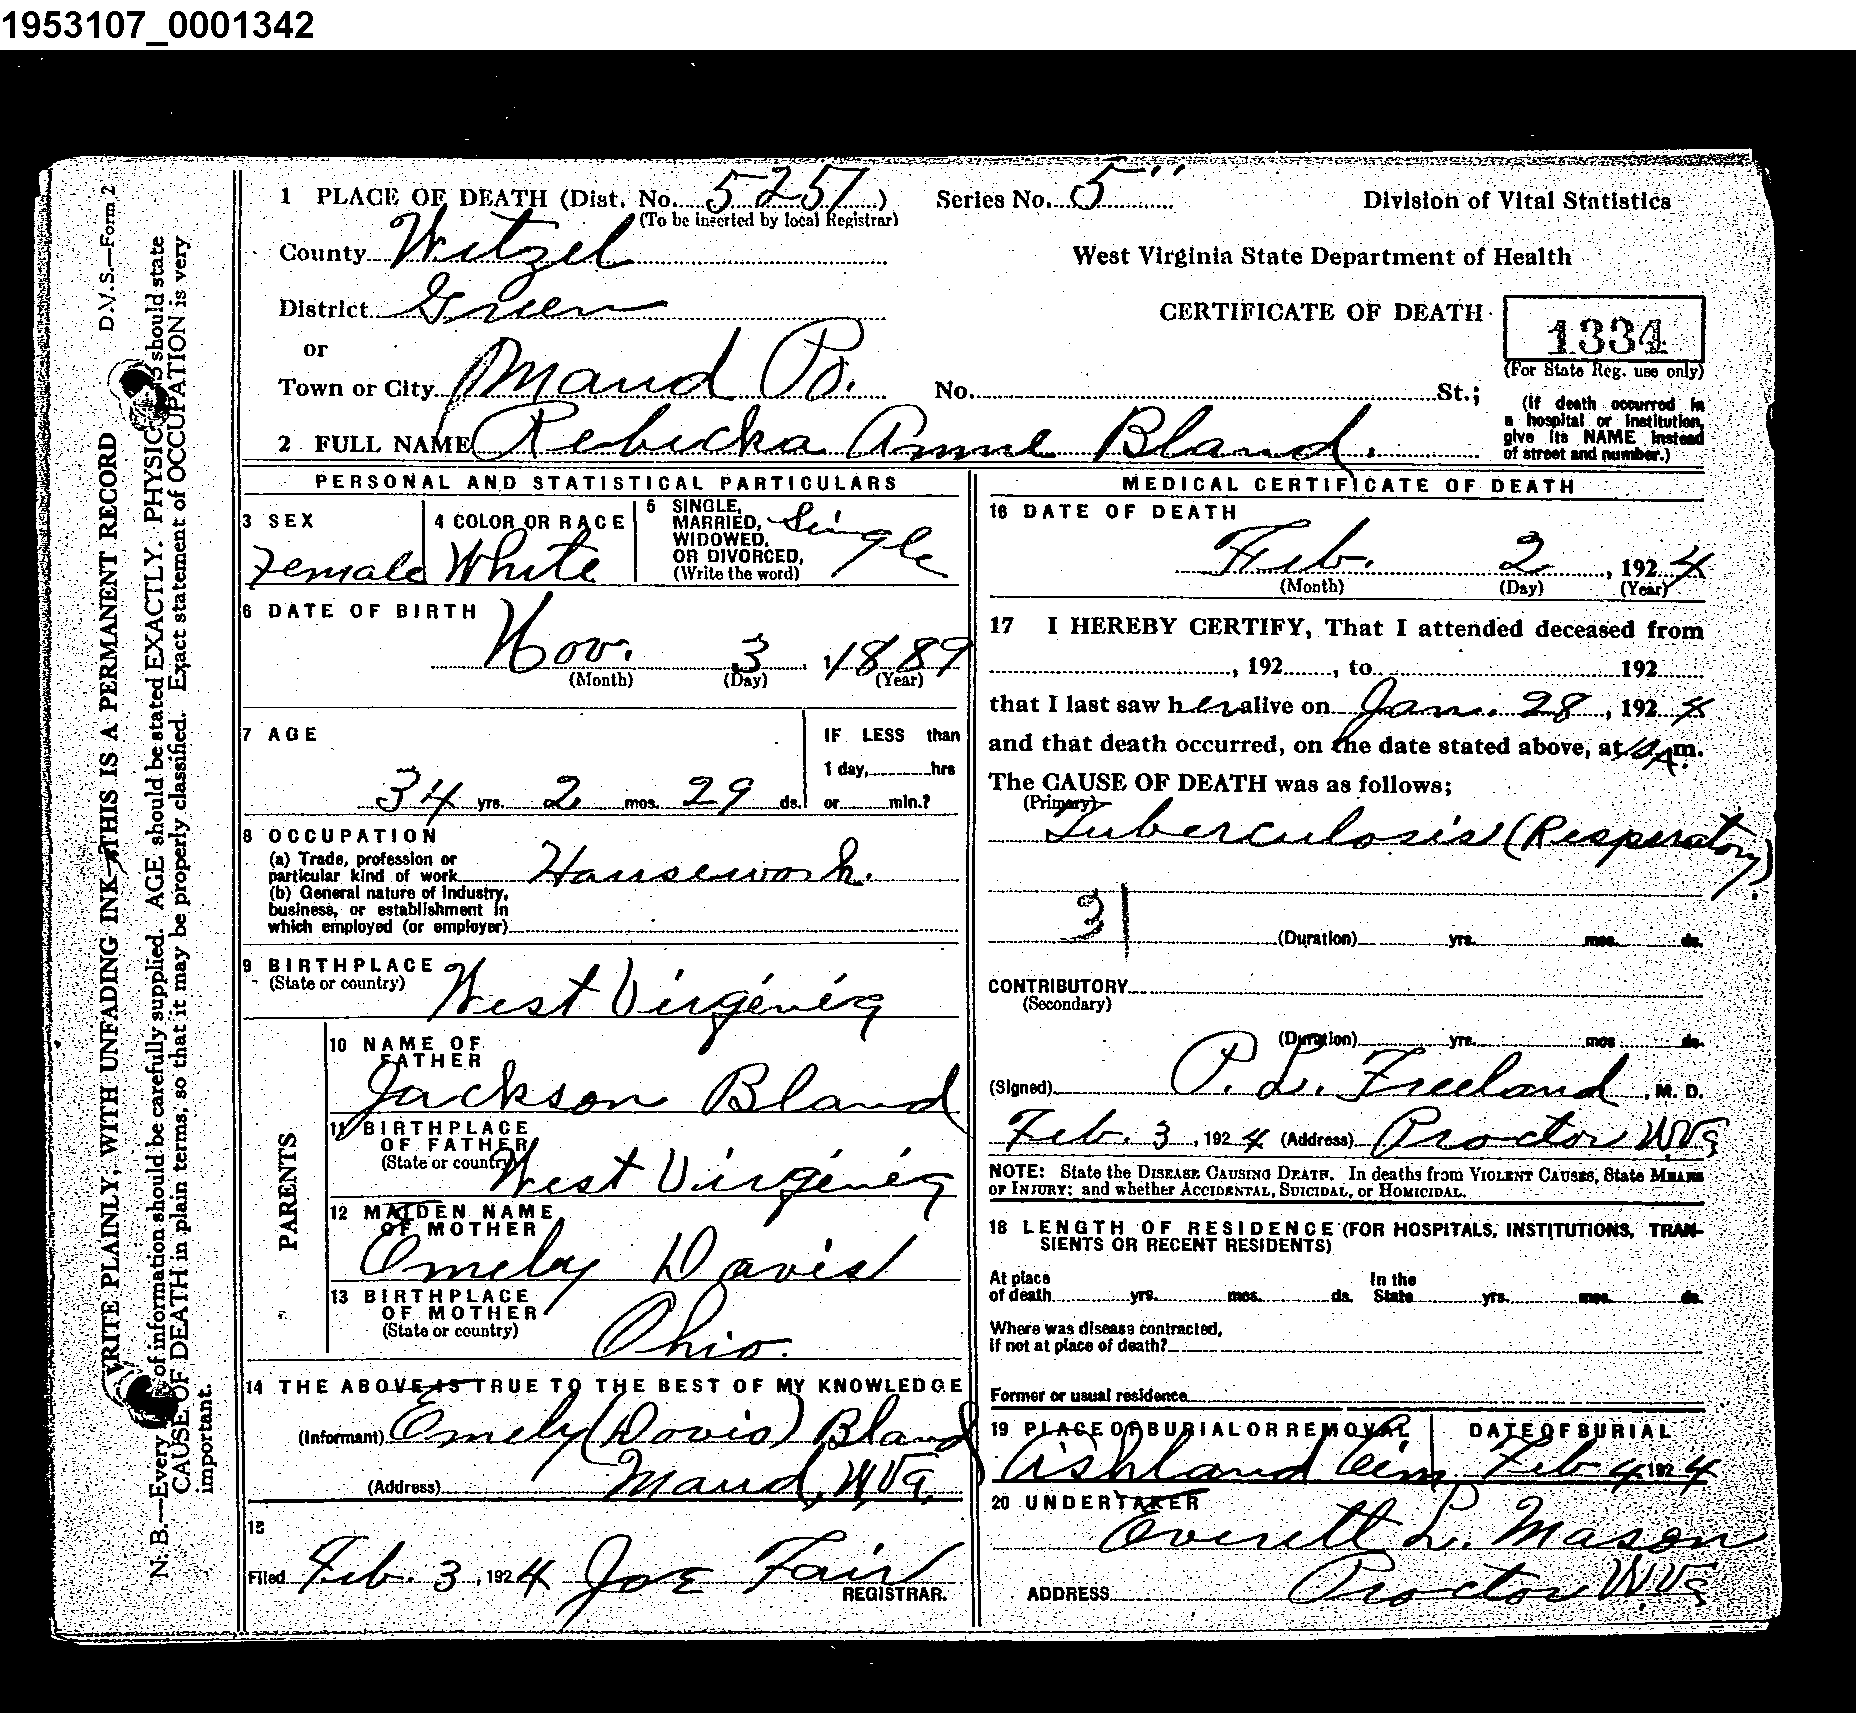 1953107_0001342
D.V.S.—Form 2
WRITE PLAINLY, WITH UNFADING INK—THIS IS A PERMANENT RECORD
N. B.—Every of information should be carefully supplied. AGE should be stated EXACTLY. PHYSIC should state
CAUSE OF DEATH in plain terms, so that it may be properly classified. Exact statement of OCCUPATION is very
important.
1 PLACE OF DEATH (Dist. No. 5251) Series No. 5" Division of Vital Statistics
(To be inserted by local Registrar)
County Wetzel West Virginia State Department of Health
District Green CERTIFICATE OF DEATH 1334
(For State Reg. use only)
or
Town or City Maud Po. No. St.;
(If death occurred in
a hospital or institution,
give its NAME instead
of street and number.)
2 FULL NAME Rebicka Anne Bland.
PERSONAL AND STATISTICAL PARTICULARS
3 SEX
Female
4 COLOR OR RACE
White
5 SINGLE,
MARRIED,
WIDOWED,
OR DIVORCED,
(Write the word)
Single
6 DATE OF BIRTH
Nov. 3, 1889
(Month) (Day) (Year)
7 AGE
34 yrs. 2 mos. 29 ds.
IF LESS than
1 day, hrs
or min.?
8 OCCUPATION
(a) Trade, profession or
particular kind of work Housework.
(b) General nature of Industry,
business, or establishment in
which employed (or employer)
9 BIRTHPLACE
(State or country) West Virginia
PARENTS
10 NAME OF
FATHER
Jackson Bland
11 BIRTHPLACE
OF FATHER
(State or country) West Virginia
12 MAIDEN NAME
OF MOTHER
Emely Davis
13 BIRTHPLACE
OF MOTHER
(State or country) Ohio.
14 THE ABOVE IS TRUE TO THE BEST OF MY KNOWLEDGE
(Informant) Emely (Davis) Bland
(Address) Maud, W.Va.
15
Filed Feb. 3, 1924 Joe Fair
REGISTRAR.
MEDICAL CERTIFICATE OF DEATH
16 DATE OF DEATH
Feb. 2, 1924
(Month) (Day) (Year)
17 I HEREBY CERTIFY, That I attended deceased from
, 192 , to 192
that I last saw her alive on Jan. 28, 1924
and that death occurred, on the date stated above, at A.m.
The CAUSE OF DEATH was as follows;
(Primary)
Tuberculosis (Respiratory)
31
(Duration) yrs. mos. ds.
CONTRIBUTORY
(Secondary)
(Duration) yrs. mos ds.
(Signed) P. L. Freeland, M. D.
Feb. 3, 1924 (Address) Proctor W.Va
NOTE: State the DISEASE CAUSING DEATH. In deaths from VIOLENT CAUSES, State MEANS
OF INJURY; and whether ACCIDENTAL, SUICIDAL, or HOMICIDAL.
18 LENGTH OF RESIDENCE (FOR HOSPITALS, INSTITUTIONS, TRAN-
SIENTS OR RECENT RESIDENTS)
At place In the
of death yrs. mos. ds. State yrs. mos. ds.
Where was disease contracted,
if not at place of death?
Former or usual residence
19 PLACE OF BURIAL OR REMOVAL DATE OF BURIAL
Ashland Cem Feb 4 1924
20 UNDERTAKER
Everett L. Mason
ADDRESS Proctor W.Va